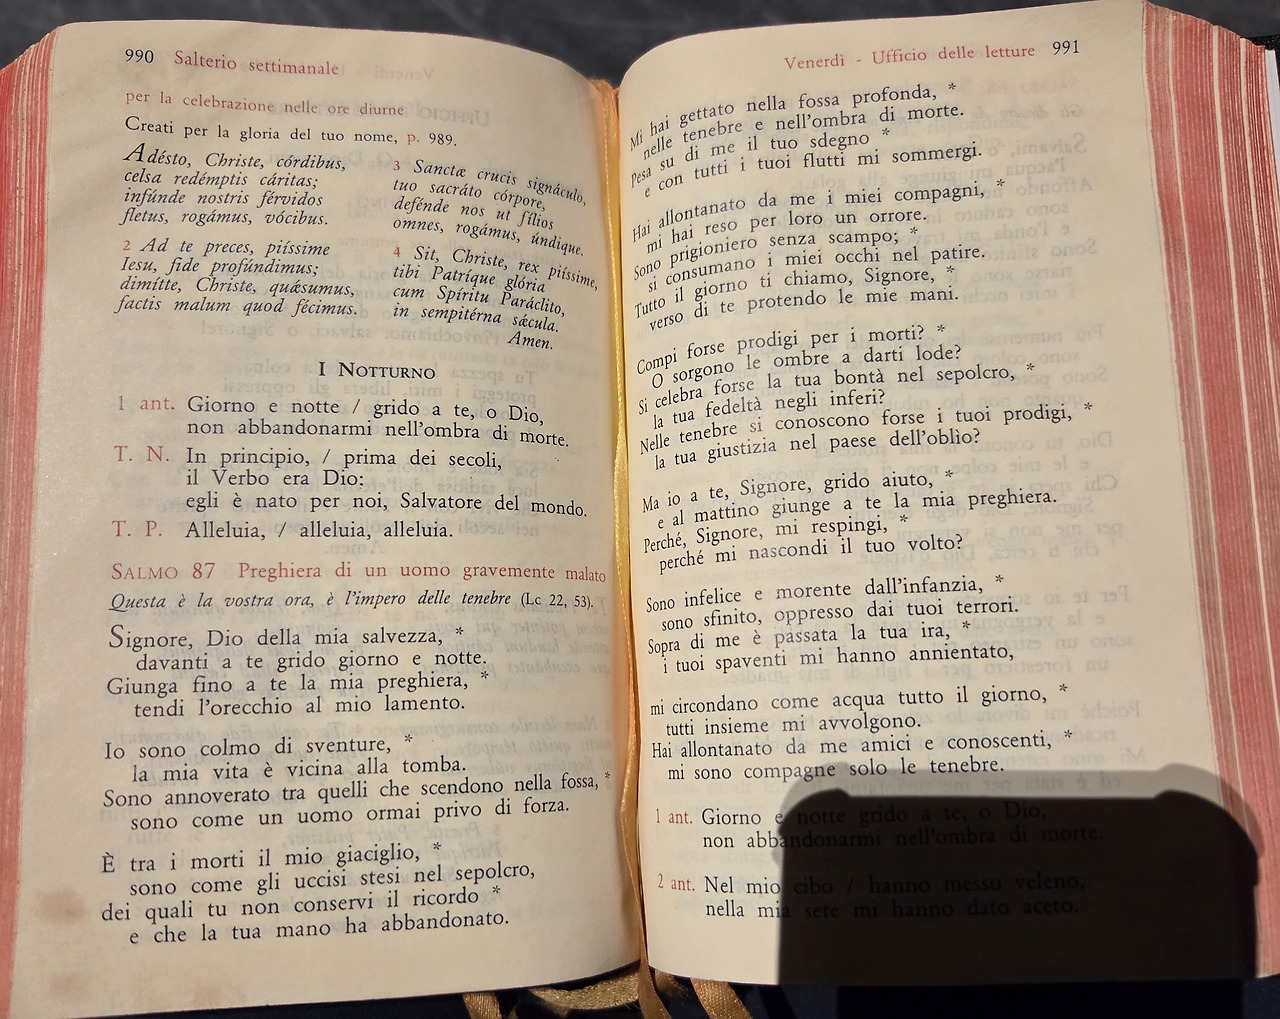 990 Salterio settimanale
per la celebrazione nelle ore diurne
Creati per la gloria del tuo nome, p. 989.
Adésto, Christe, córdibus,
celsa redémptis cáritas;
infúnde nostris férvidos
fletus, rogámus, vócibus.
2 Ad te preces, piíssime
Iesu, fide profúndimus;
dimítte, Christe, quǽsumus,
factis malum quod fécimus.
3 Sanctæ crucis signáculo,
tuo sacráto córpore,
defénde nos ut fílios
omnes, rogámus, úndique.
4 Sit, Christe, rex piíssime,
tibi Patríque glória
cum Spíritu Paráclito,
in sempitérna sǽcula.
Amen.
I NOTTURNO
1 ant. Giorno e notte / grido a te, o Dio,
non abbandonarmi nell'ombra di morte.
T. N. In principio, / prima dei secoli,
il Verbo era Dio:
egli è nato per noi, Salvatore del mondo.
T. P. Alleluia, / alleluia, alleluia.
SALMO 87 Preghiera di un uomo gravemente malato
Questa è la vostra ora, è l'impero delle tenebre (Lc 22, 53).
Signore, Dio della mia salvezza, *
davanti a te grido giorno e notte.
Giunga fino a te la mia preghiera, *
tendi l'orecchio al mio lamento.
Io sono colmo di sventure, *
la mia vita è vicina alla tomba.
Sono annoverato tra quelli che scendono nella fossa, *
sono come un uomo ormai privo di forza.
È tra i morti il mio giaciglio, *
sono come gli uccisi stesi nel sepolcro,
dei quali tu non conservi il ricordo *
e che la tua mano ha abbandonato.
Venerdì - Ufficio delle letture 991
Mi hai gettato nella fossa profonda, *
nelle tenebre e nell'ombra di morte.
Pesa su di me il tuo sdegno *
e con tutti i tuoi flutti mi sommergi.
Hai allontanato da me i miei compagni, *
mi hai reso per loro un orrore.
Sono prigioniero senza scampo; *
si consumano i miei occhi nel patire.
Tutto il giorno ti chiamo, Signore, *
verso di te protendo le mie mani.
Compi forse prodigi per i morti? *
O sorgono le ombre a darti lode?
Si celebra forse la tua bontà nel sepolcro, *
la tua fedeltà negli inferi?
Nelle tenebre si conoscono forse i tuoi prodigi, *
la tua giustizia nel paese dell'oblìo?
Ma io a te, Signore, grido aiuto, *
e al mattino giunge a te la mia preghiera.
Perché, Signore, mi respingi, *
perché mi nascondi il tuo volto?
Sono infelice e morente dall'infanzia, *
sono sfinito, oppresso dai tuoi terrori.
Sopra di me è passata la tua ira, *
i tuoi spaventi mi hanno annientato,
mi circondano come acqua tutto il giorno, *
tutti insieme mi avvolgono.
Hai allontanato da me amici e conoscenti, *
mi sono compagne solo le tenebre.
1 ant. Giorno e notte grido a te, o Dio,
non abbandonarmi nell'ombra di morte.
2 ant. Nel mio cibo / hanno messo veleno,
nella mia sete mi hanno dato aceto.